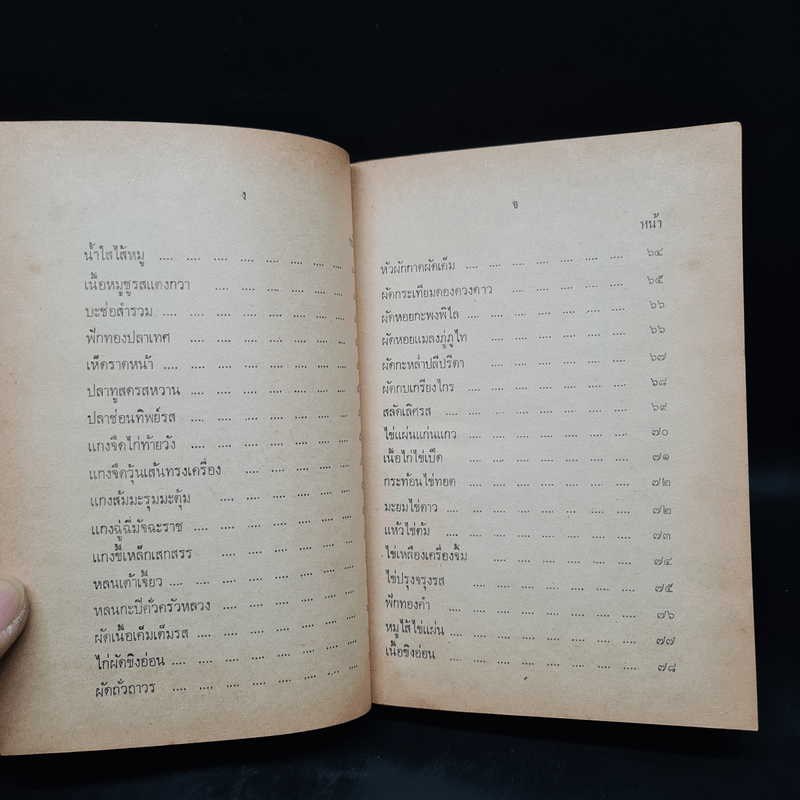 ง
น้ำใสไส้หมู .... .... .... .... .... .... .... ....
เนื้อหมูชูรสแตงกวา .... .... .... .... .... ....
บะช่อสำรวม .... .... .... .... .... .... .... ....
ฟักทองปลาเทศ .... .... .... .... .... .... ....
เห็ดราดหน้า .... .... .... .... .... .... .... ....
ปลาทูสดรสหวาน .... .... .... .... .... .... ....
ปลาช่อนทิพย์รส .... .... .... .... .... .... ....
แกงจืดไก่ท้ายวัง .... .... .... .... .... .... ....
แกงจืดวุ้นเส้นทรงเครื่อง .... .... .... .... ....
แกงส้มมะรุมมะตุ้ม .... .... .... .... .... ....
แกงฉู่ฉี่มัจฉะราช .... .... .... .... .... .... ....
แกงขี้เหล็กเสกสรร .... .... .... .... .... .... ....
หลนเต้าเจี้ยว .... .... .... .... .... .... .... ....
หลนกะปิคั่วครัวหลวง .... .... .... .... .... ....
ผัดเนื้อเค็มเต็มรส .... .... .... .... .... .... ....
ไก่ผัดขิงอ่อน .... .... .... .... .... .... .... ....
ผัดถั่วถาวร .... .... .... .... .... .... .... ....
จ
หน้า
หัวผักกาดผัดเค็ม .... .... .... .... .... .... .... ๖๔
ผัดกระเทียมดองดวงดาว .... .... .... .... .... ๖๕
ผัดหอยกะพงพิไล .... .... .... .... .... .... .... ๖๖
ผัดหอยแมลงภู่ภูไท .... .... .... .... .... .... ๖๖
ผัดกะหล่ำปลีปรีดา .... .... .... .... .... .... ๖๗
ผัดกบเกรียงไกร .... .... .... .... .... .... .... ๖๘
สลัดเลิศรส .... .... .... .... .... .... .... .... ๖๙
ไข่แผ่นแก่นแกว .... .... .... .... .... .... .... ๗๐
เนื้อไก่ไข่เป็ด .... .... .... .... .... .... .... ๗๑
กระท้อนไข่ทอด .... .... .... .... .... .... .... ๗๒
มะยมไข่ดาว .... .... .... .... .... .... .... .... ๗๒
แห้วไข่ต้ม .... .... .... .... .... .... .... .... ๗๓
ไข่เหลืองเครื่องจิ้ม .... .... .... .... .... .... ๗๔
ไข่ปรุงจรุงรส .... .... .... .... .... .... .... ๗๕
ฟักทองคำ .... .... .... .... .... .... .... .... ๗๖
หมูไส้ไข่แผ่น .... .... .... .... .... .... .... .... ๗๗
เนื้อขิงอ่อน .... .... .... .... .... .... .... .... ๗๘